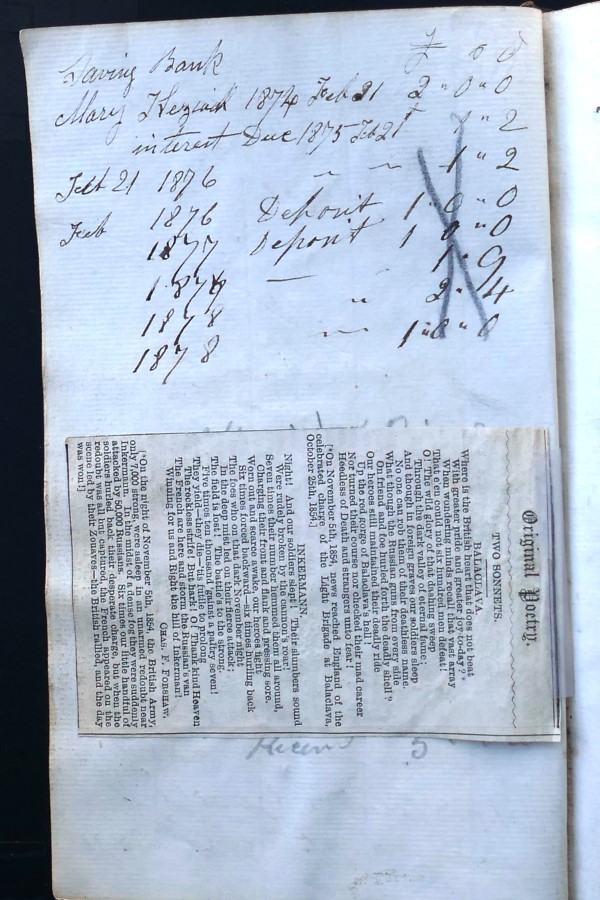 Saving Bank £ s d
Mary Keziah 1874 Feb 21 2 " 0 " 0
interest Due 1875 Feb 21 1 " 2
Feb 21 1876 " ~ 1 " 2
Feb 1876 Deposit 1 " 0 " 0
1877 Deposit 1 0 " 0
1878 — 1 " 9
1878 " 2 " 4
1878 ~ 1 " 0 " 0
Original Poetry.
TWO SONNETS.
BALACLAVA.
Where is the British heart that does not beat
With greater pride and greater joy to-day?*
When wondering nations, and a vast array
That e'er could not six hundred men defeat!
O! The wild glory of that dashing sweep
Through the dark valley of eternal fame;
And though in foreign graves our soldiers sleep
No one can rob them of their deathless name.
What though the Russian guns from every side
On friend and foe belched forth the deadly shell?
Our heroes still maintained their deadly ride
Up the red gorge of Balaclava's hell;
Nor turned their course nor checked their mad career
Heedless of Death and strangers unto fear!
[*On November 5th, 1854, news reached England of the
celebrated charge of the Light Brigade at Balaclava,
October 25th, 1854.]
INKERMANN.
Night! And our soldiers slept. Their slumbers sound
Were rudely broken by the cannon's roar;
Seven times their number hemmed them all around,
Charging their front and on them pressing sore.
Worn out and scarce awake, our heroes fight:
Six times forced backward—six times hurling back
The foes who on that dark November night
In the deep mist led on their fierce attack;
The field is lost! The battle's to the strong:
Five times ten thousand 'gainst a paltry seven!
They must yield—they die—'tis futile to prolong
The reckless strife! But hark! Thank kind Heaven
The French are here and storm the Russian's van
Winning for us and Right the hill of Inkerman!
CHAS. F. FORSHAW.
[*On the night of November 5th, 1854, the British Army,
only 7,000 strong, were asleep in an unarmed redoubt near
Inkerman. In the midst of a dense fog they were suddenly
attacked by 50,000 Russians. Six times our little handful of
soldiers hurled back their desperate charge, but when the
redoubt was all but captured, the French appeared on the
scene led by their Zouaves—the British rallied, and the day
was won!]
5